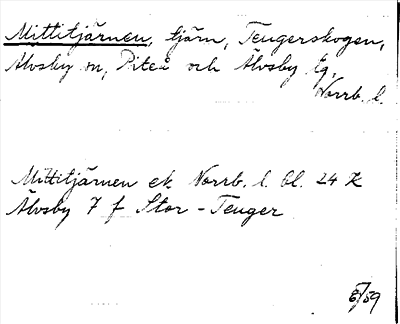 Mittitjärnen, tjärn, Teugerskogen,
Älvsby sn, Piteå och Älvsby tg,
Norrb. l.
Mittitjärnen ek Norrb. l. bl. 24 K
Älvsby 7 f Stor-Teuger
/59